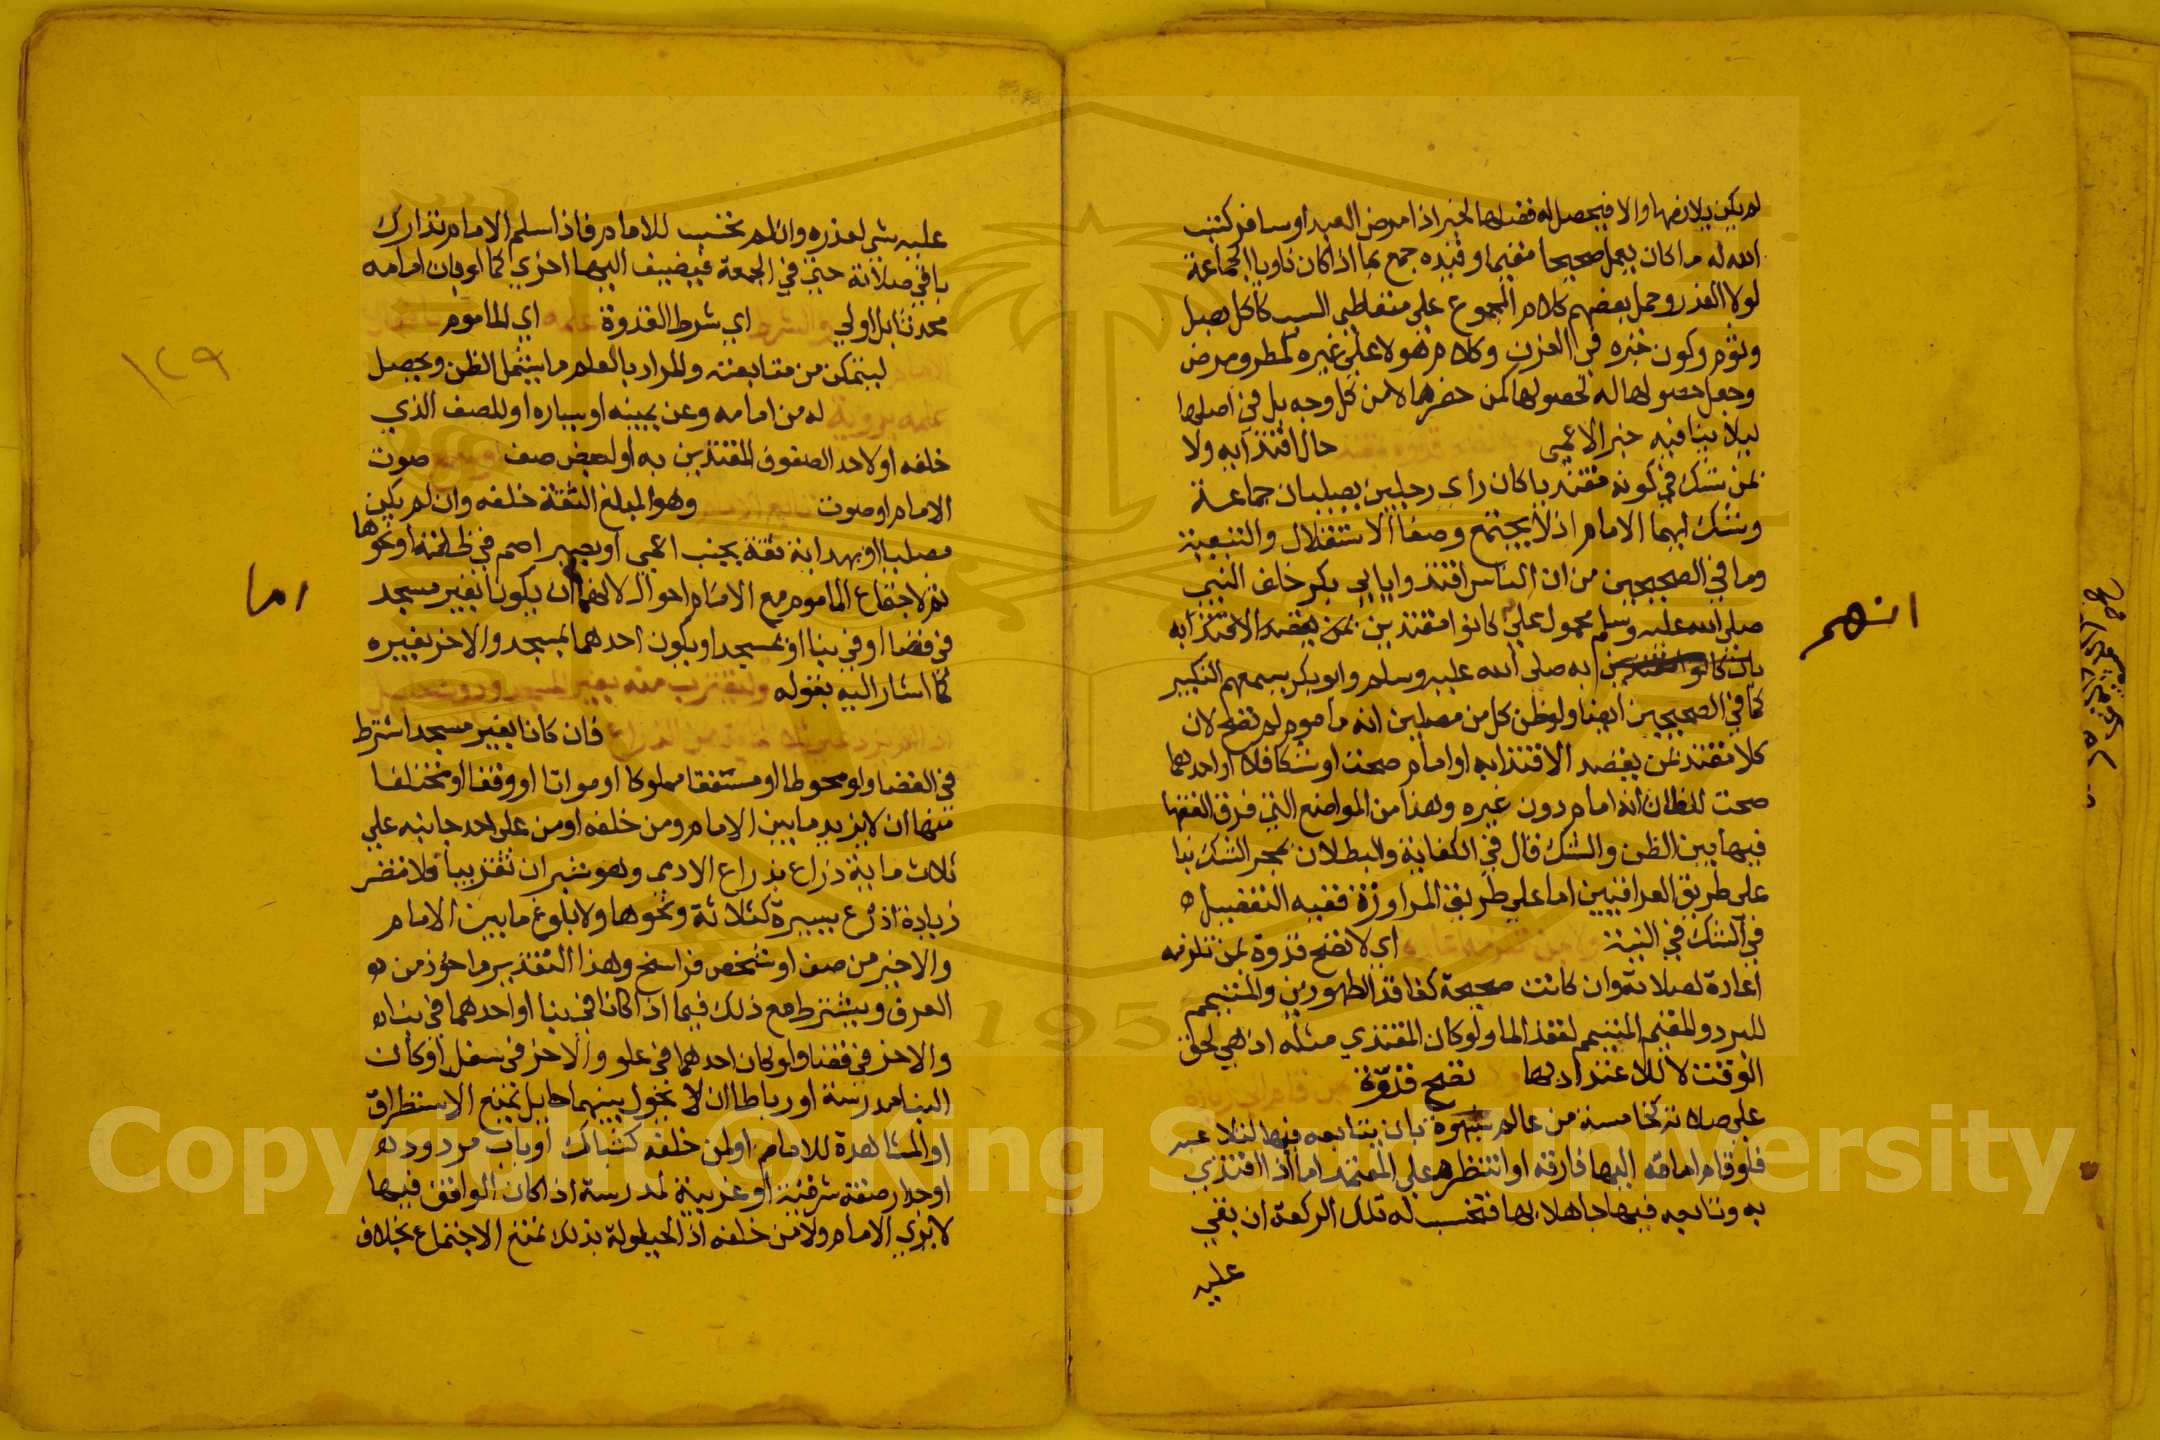 لم يكن يلازمها والا فيحصل له فضلها لخبر اذا مرض العبد او سافر كتب
الله له ما كان يعمل صحيحا مقيما وقيده جمع بما اذا كان ناويا الجماعة
لولا العذر وحمل بعضهم كلام المجموع على متعاطي السبب كاكل بصل
وثوم وكون خبزه في الفرن وكلام هولا على غيره كمطر ومرض
وجعل حصولها له كحصولها لمن حضرها لا من كل وجه بل في اصلها
ليلا ينافيه خبر الاعمى ولا تصح قدوة بمقتد حال اقتدايه ولا
بمن شك في كونه مقتديا كان راى رجلين يصليان جماعة
وشك ايهما الامام اذ لا يجتمع وصفا الاستقلال والتبعية
وما في الصحيحين من ان الناس اقتدوا بابي بكر خلف النبي
صلى الله عليه وسلم محمول على كانوا مقتدين بمن يقصد الاقتدا به
به صلى الله عليه وسلم وابو بكر يسمعهم التكبير
كما في الصحيحين ايضا ولو ظن كل من مصليين انه ماموم لم تصح لان
كلا مقتد بمن يقصد الاقتدا به او امام صحت او شكا فلا او احدهما
صحت للظان انه امام دون غيره وهذا من المواضع التي فرق الفقها
فيها بين الظن والشك قال في الكفاية والبطلان بمجرد الشك بنا
على طريق العراقيين اما على طريق المراوزة ففيه التفصيل
في الشك في النية ولا بمن تلزمه اعاده اي لا تصح قدوة بمن تلزمه
اعادة لصلاته وان كانت صحيحة كفاقد الطهورين والمتيمم
للبرد والمقيم المتيمم لفقد الما ولو كان المقتدي مثله اذ هي لحق
الوقت لا للاعتداد بها ولا تصح قدوة بمن قام الى زيادة
على صلاته كخامسة من عالم بسهوه بان يتابعه فيها لتلاعبه
فلو قام امامه اليها فارقه او انتظره على المعتمد اما اذا اقتدي
به وتابعه فيها جاهلا بها فتحسب له تلك الركعة ان بقي
عليه
انهم
عليه شي لعذره وان لم تحسب للامام فاذا سلم الامام تدارك
باقي صلاته حتى في الجمعة فيضيف اليها اخري كما لو بان امامه
محدثا بل اولي والشرط اي شرط القدوة علمه اي الماموم بافعال
الامام ليتمكن من متابعته والمراد بالعلم ما يشمل الظن ويحصل
علمه برويه له من امامه وعن يمينه او يساره او للصف الذي
خلفه او لاحد الصفوف المقتدين به او لبعض صف او سمع صوت
الامام او صوت تابع الامام وهو المبلغ الثقة خلفه وان لم يكن
مصليا او بهداية ثقة بجنب اعمى او بصير اصم في ظلمة او نحوها
ثم لاجتماع الماموم مع الامام احوال لانهما ان يكونا بغير مسجد
في فضا او في بنا او بمسجد او يكون احدهما بمسجد والاخر بغيره
كما اشار اليه بقوله وليقترب منه بغير المسجد ودون حايل
اذا لم يزد على ثلاث ماية من الذراع فان كانا بغير مسجد اشترط
في الفضا ولو محوطا او مسقفا مملوكا او مواتا او وقفا او مختلفا
منها ان لا يزيد ما بين الامام ومن خلفه او من على احد جانبيه على
ثلاث ماية ذراع بذراع الادمي وهو شبران تقريبا فلا تضر
زيادة اذرع يسيرة كثلاثة ونحوها ولا بلوغ ما بين الامام
والاخير من صف او شخص فراسخ وهذا التقدير ماخوذ من
العرف ويشترط مع ذلك فيما اذا كانا في بنا او احدهما في بنا
والاخر في فضا ولو كان احدهما في علو والاخر في سفل او كان
البنا مدرسة او رباطا ان لا يحول بينهما حايل يمنع الاستطراق
او المشاهدة للامام او لمن خلفه كشباك او باب مردود
او جدار صفة شرقية او غربية لمدرسة اذا كان الواقف فيها
لا يري الامام ولا من خلفه اذ الحيلولة بذلك تمنع الاجتماع بخلاف
اما
١٢٩
Copyright © King Saud University
1957